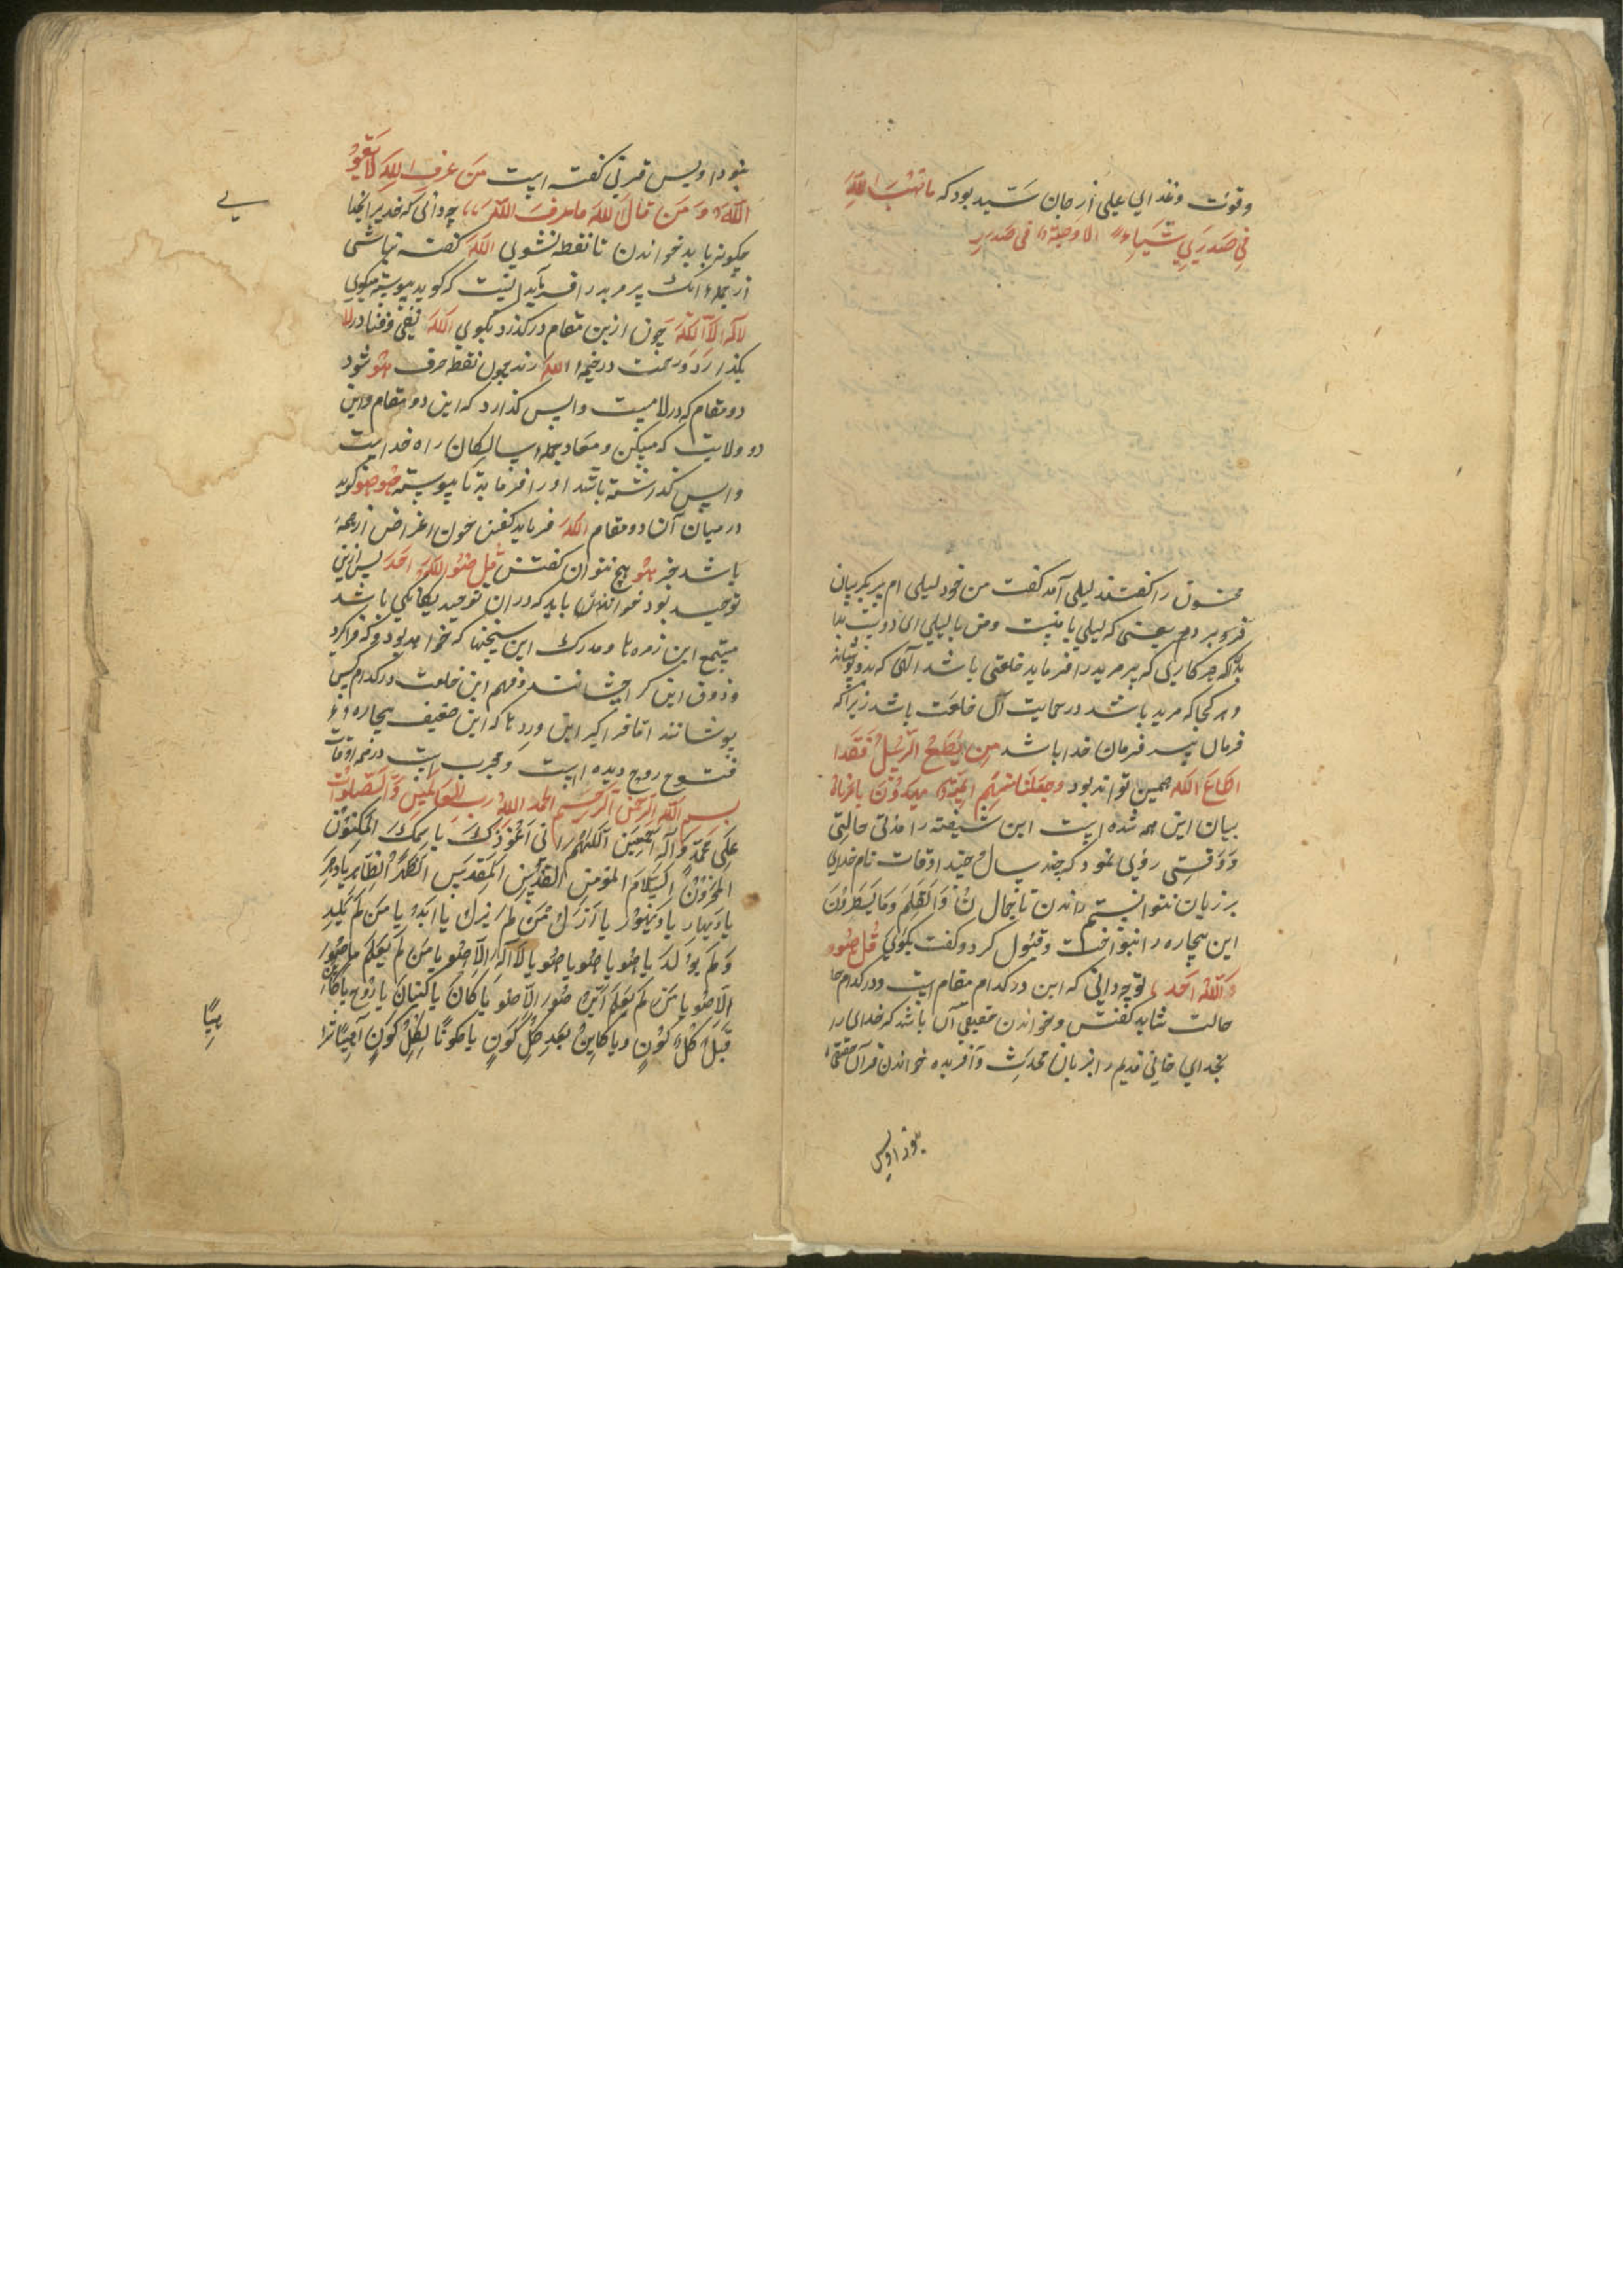 وقوت وغذای علی از جان سید بود که ما صب الله
فی صدری شیاء الا وصبة فی صدر
مجنون را گفتند لیلی آمد گفت من خود لیلی ام سر بگریبان
فرو برد یعنی که لیلی با منست ومن با لیلی ای دوست بدا
بلکه هر کاری که پیر مرید را فرماید خلعتی باشد الهی که بدو پوشانند
وهر کجا که مرید باشد در حمایت آن خلعت باشد زیرا که
فرمان پیر فرمان خدا باشد من یطع الرسل فقد ا
اطاع الله همین تواند بود وجعلنا منهم ایمة یهدون بامرنا
بیان این همه شده است این شیفته را مدتی حالتی
ووقتی روی نمود که چند سال چند اوقات نام خدای
بر زبان نتوانستم راندن تا بجمال ن والقلم وما یسطرون
این بیچاره را بنواخت وقبول کرد وگفت بگوئی قل هو
الله احد تو چه دانی که این در کدام مقام است ودر کدام جا
حالت شاید گفتن وخواندن حقیقی آن باشد که خدای را
بخدای خوانی قدیم را بزبان محدث وآفریده خواندن قرآن حقیقی
بود اویس
نبود اویس قرنی گفته است من عرف الله لا یقول
الله ومن قال لله ما عرف الله چه دانی که خدیرا آنجا
چگونه باید خواندن تا نقطه نشوی الله گفته نباشی
از جمله آنک پیر مرید را فرماید اینست که گوید پیوسته میگوی
لا اله الا الله چون ازین مقام درگذرد بگوی الله نفی وفنا در لا
بگذارد ورخت در خیمه الله زند چون نقطه حرف هو شود
دو مقام که در لا میست واپس گذارد که این دو مقام واین
دو ولایت که مسکن ومعاد جمله سالکان راه خداست
واپس گذرشته باشد او را فرماید تا پیوسته هو هو گوید
در میان آن دو مقام الله فرماید گفتن چون اغراض از همه
باشد بجز هو هیچ نتوان گفتن قل هو الله احد پس ازین
توحید بود خواندن باید که در ان توحید یگانگی باشد
مستمع این زمره تا ومدرک این سخنها که خواهد بود وکه فرا گرد
وذوق این کرا چشانند وفهم این خلعت در کدام کس
پوشانند اما فرا گیر این ورد تا که این ضعیف بیچاره
فتوح روح دیده است ومجرب است در همه اوقات
بسم الله الرحمن الرحیم الحمد الله رب للعالمین والصلوات
علی محمد وآله اجمعین اللهم انی اعوذ بک یا سمک المکنون
المخزون السلام المومن القدیس المقدس الطهر الطاهر یا دهر
یا دیهار یا دیهور یا ازل من لم یزل یا ابد یا من لم یلد
ولم یولد یا هو یا هو یا هو یا لا اله الا هو یا من لم یعلم ما هو
الا هو یا من لم یعلم این هو الا هو یا کان یا کینان یا روح یا کائن
قبل کل کون ویا کاین بعد کل کون یا مکونا لکل کون آهیا شرا
هیا